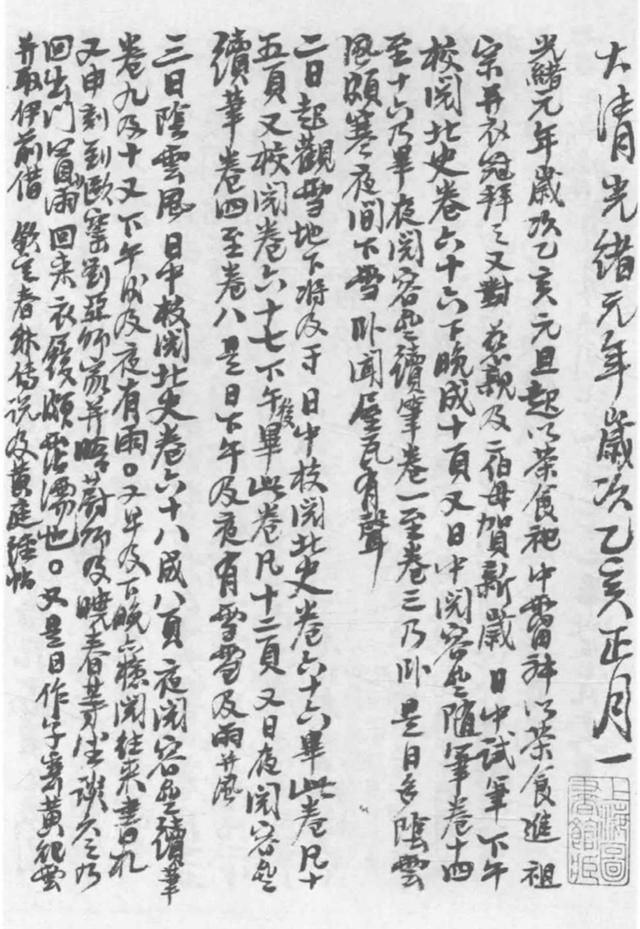 大清光緒元年歲次乙亥正月一
光緒元年歲次乙亥元旦起以茶食祀中霤神以茶食進 祖
宗并衣冠拜之又對 慈親及二伯母賀新歲 日中試筆下午
校閱北史卷六十六下晚成十頁又日中閱容齋隨筆卷十四
至十六乃畢夜閱容齋續筆卷一至卷三乃卧是日多陰雲
風頗寒夜間下雪 卧聞屋瓦有聲
二日起觀雪地下將及寸 日中校閱北史卷六十六畢此卷凡十
五頁又校閱卷六十七下午後畢此卷凡十二頁又日夜閱容齋
續筆卷四至卷八是日下午及夜有雪雪及雨并風
三日陰雲風 日中校閱北史卷六十八成八頁夜閱容齋續筆
卷九及十又下午後及夜有雨○又早及下晚亦檢閱往來書札
又申刻到歐窰劉亞師家并晤蔚師及曉春等坐談久之乃
回出門冒雨回來衣履頗霑濡也○又是日作字寄黃祀雲
并取伊前借 欽定春秋傳說及黃庭經帖
上海圖書館藏